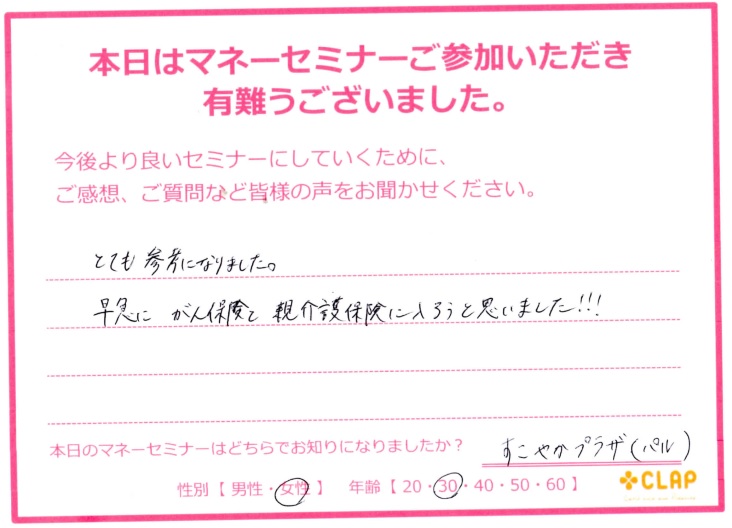 本日はマネーセミナーご参加いただき
有難うございました。
今後より良いセミナーにしていくために、
ご感想、ご質問など皆様の声をお聞かせください。
とても参考になりました。
早急に がん保険と 親介護保険に入ろうと思いました!!!
本日のマネーセミナーはどちらでお知りになりましたか？ すこやかプラザ(パル)
性別【 男性・女性 】 年齢【 20・30・40・50・60 】 CLAP